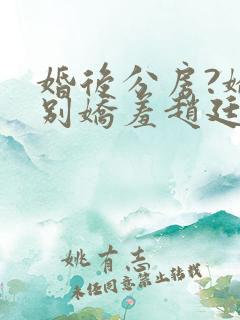 婚後分房?她
别嬌羞趙廷
姚有志
未经同意禁止转载